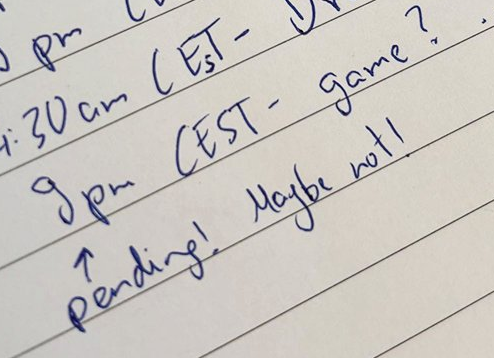 pm
:30 am CEST -
9pm CEST - game?
↑
pending! Maybe not!